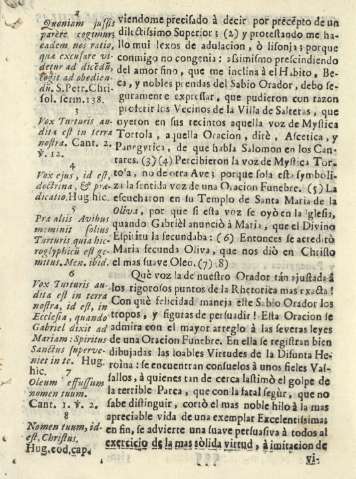 2
Quoniam jussis
parere cogimur
eadem nos ratio,
quæ excusare vi-
detur ad dicédū,
cogit ad obedien-
dū, S. Petr. Chri-
sol. serm. 138.
3
Vox Turturis au-
dita est in terra
nostra. Cant. 2.
v. 12.
4
Vox ejus, id est,
doctrina, & præ-
dicatio. Hug. hic.
5
Præ aliis Avibus
meminit solius
Turturis quia hie-
roglyphicū est ge-
mitus. Men. ibid.
6
Vox Turturis au-
dita est in terra
nostra, id est, in
Ecclesia, quando
Gabriel dixit ad
Mariam: Spiritus
Sanctus superve-
niet in te. Hug.
hic. 7
Oleum effussum
nomen tuum.
Cant. 1. v. 2.
8
Nomen tuum, id-
est, Christus,
Hug. eod. cap.
viendome precisado à decir por precepto de un
dilectissimo Superior; (2) y protestando me ha-
llo mui lexos de adulacion, ò lisonja; porque
conmigo no congenia: assimismo prescindiendo
del amor fino, que me inclina à el Habito, Be-
ca, y nobles prendas del Sabio Orador, debo se-
guramente expressar, que pudieron con razon
proferir los Vecinos de la Villa de Salteras, que
oyeron en sus recintos aquella voz de Mystica
Tortola, a aquella Oracion, dirè, Ascetica, y
Panegytica, de que habla Salomon en los Can-
tares. (3) (4) Percibieron la voz de Mystica Tor-
tola, no de otra Ave; porque sola esta symboli-
za la sentida voz de una Oracion Funebre. (5) La
escucharon en su Templo de Santa Maria de la
Oliva, por que si esta voz se oyò en la Iglesia,
quando Gabriel anunciò à Maria, que el Divino
Espiritu la secundaba: (6) Entonces se acreditò
Maria fecunda Oliva, que nos diò en Christo
el mas suave Oleo. (7) (8)
Què voz la de nuestro Orador tàn ajustada à
los rigorosos puntos de la Rhetorica mas exacta!
Con què felicidad maneja este Sabio Orador los
tropos, y figuras de persuadir! Esta Oracion se
admira con el mayor arreglo à las severas leyes
de una Oracion Funebre. En ella se registran bien
dibujadas las loables Virtudes de la Difunta He-
roina: se encuentran consuelos à unos fieles Vas-
sallos, à quienes tan de cerca lastimò el golpe de
la terrible Parca, que con la fatal segùr, que no
sabe distinguir, cortò el mas noble hilo à la mas
apreciable vida de una exemplar Excelentissima:
en fin, se advierte una suave persuasiva à todos al
exercicio de la mas sòlida virtud, à imitacion de
vi-